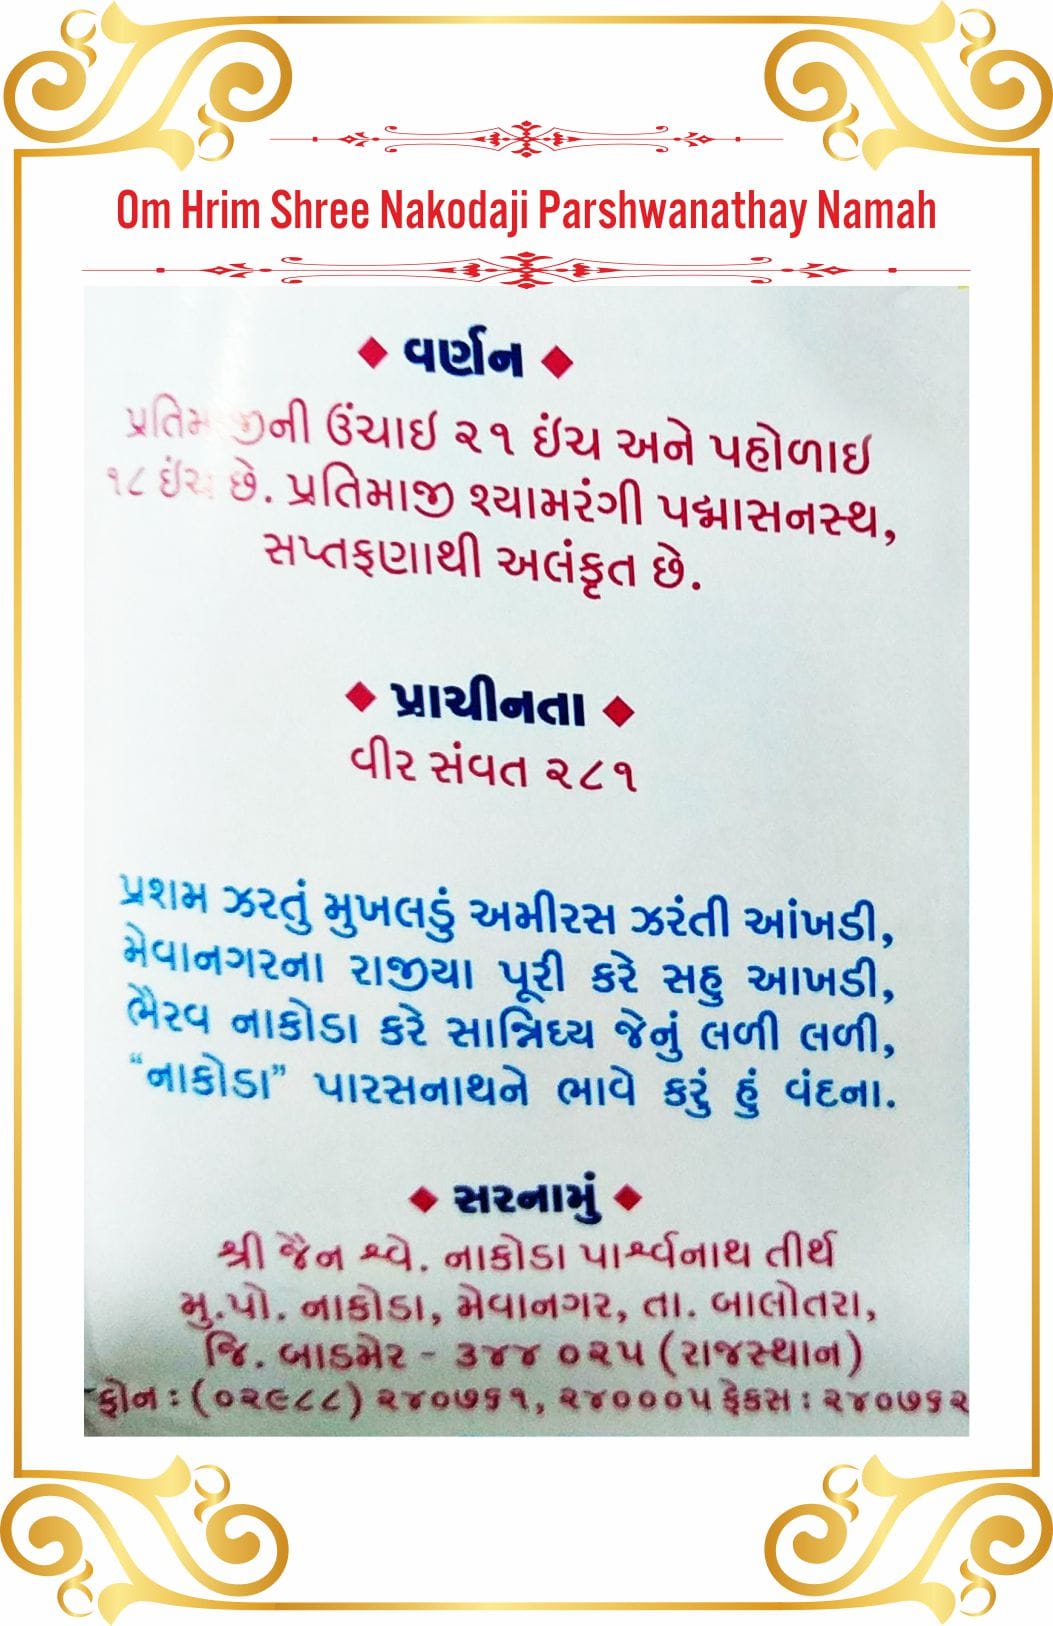 Om Hrim Shree Nakodaji Parshwanathay Namah
વર્ણન
પ્રતિમાજીની ઉંચાઇ ૨૧ ઈંચ અને પહોળાઇ
૧૮ ઈંચ છે. પ્રતિમાજી શ્યામરંગી પદ્માસનસ્થ,
સપ્તફણાથી અલંકૃત છે.
પ્રાચીનતા
વીર સંવત ૨૮૧
પ્રશમ ઝરતું મુખલડું અમીરસ ઝરંતી આંખડી,
મેવાનગરના રાજીયા પૂરી કરે સહુ આખડી,
ભૈરવ નાકોડા કરે સાન્નિધ્ય જેનું લળી લળી,
“નાકોડા” પારસનાથને ભાવે કરું હું વંદના.
સરનામું
શ્રી જૈન શ્વે. નાકોડા પાર્શ્વનાથ તીર્થ
મુ.પો. નાકોડા, મેવાનગર, તા. બાલોતરા,
જિ. બાડમેર - ૩૪૪ ૦૨૫ (રાજસ્થાન)
ફોન : (૦૨૯૮૮) ૨૪૦૭૬૧, ૨૪૦૦૦૫ ફેકસ : ૨૪૦૭૬૨